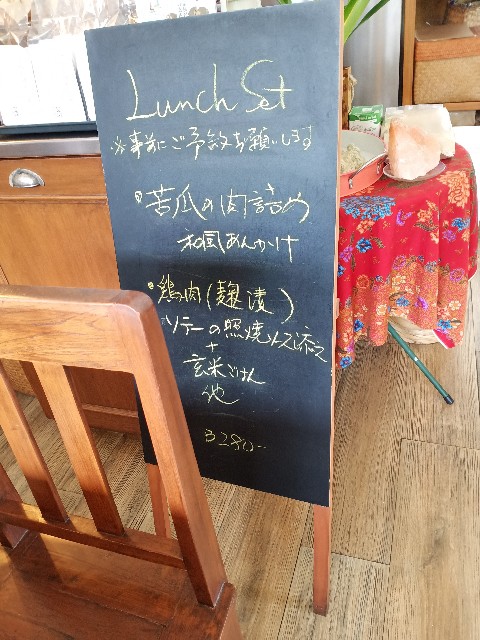 Lunch Set
※事前にご予約お願いします
•苦瓜の肉詰め
和風あんかけ
•鶏肉(麹漬)
ソテーの照焼ソース添え
+
玄米ごはん
他
B280-